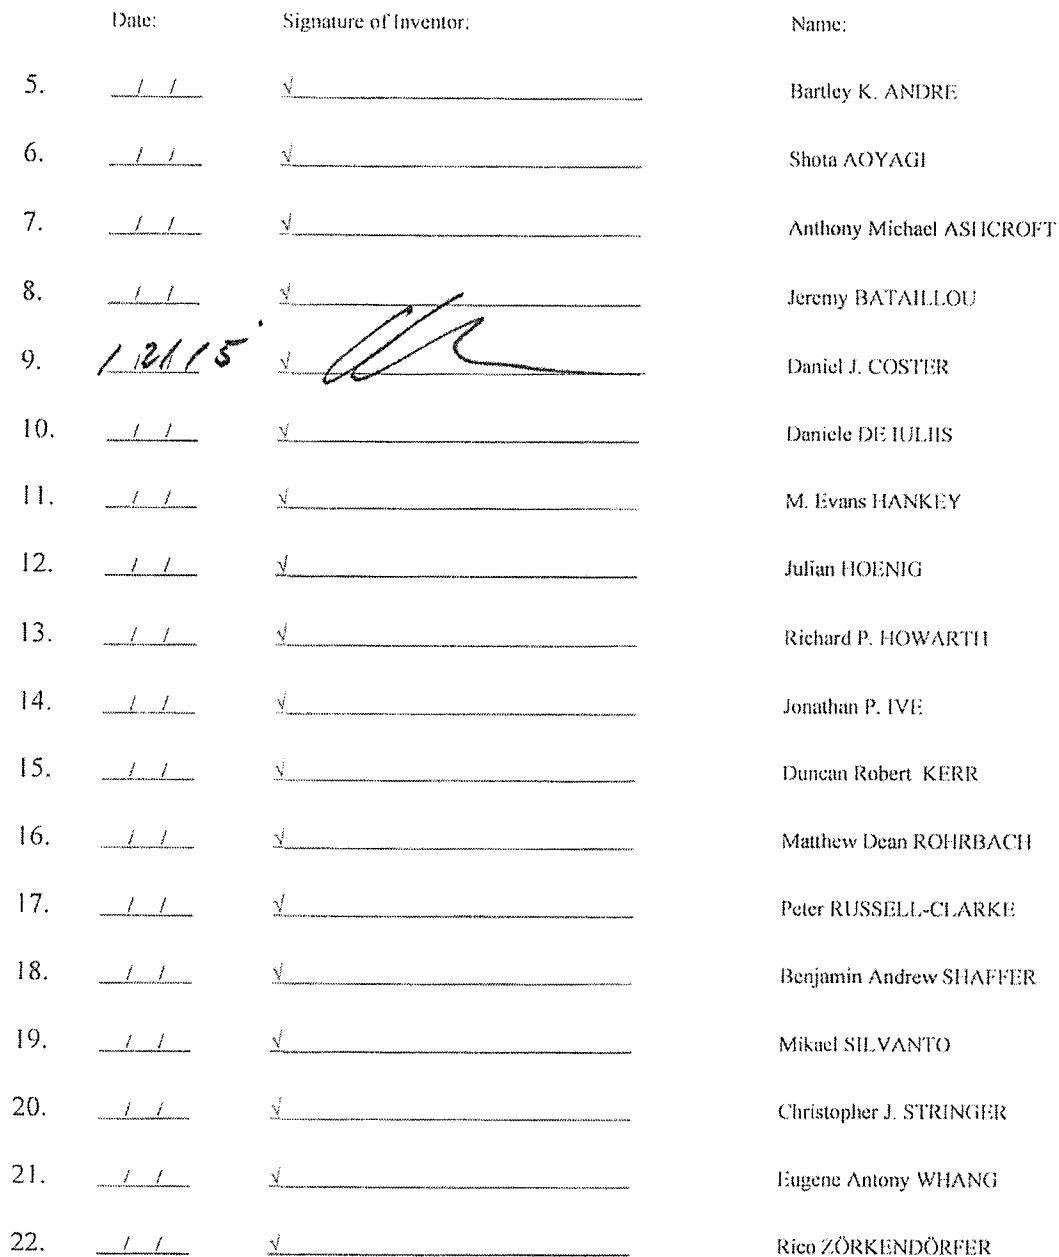 Date: Signature of Inventor: Name:
5. / / √ Bartley K. ANDRE
6. / / √ Shota AOYAGI
7. / / √ Anthony Michael ASHCROFT
8. / / √ Jeremy BATAILLOU
9. √ Daniel J. COSTER
10. / / √ Daniele DE IULIIS
11. / / √ M. Evans HANKEY
12. / / √ Julian HOENIG
13. / / √ Richard P. HOWARTH
14. / / √ Jonathan P. IVE
15. / / √ Duncan Robert KERR
16. / / √ Matthew Dean ROHRBACH
17. / / √ Peter RUSSELL-CLARKE
18. / / √ Benjamin Andrew SHAFFER
19. / / √ Mikael SILVANTO
20. / / √ Christopher J. STRINGER
21. / / √ Eugene Antony WHANG
22. / / √ Rico ZÖRKENDÖRFER